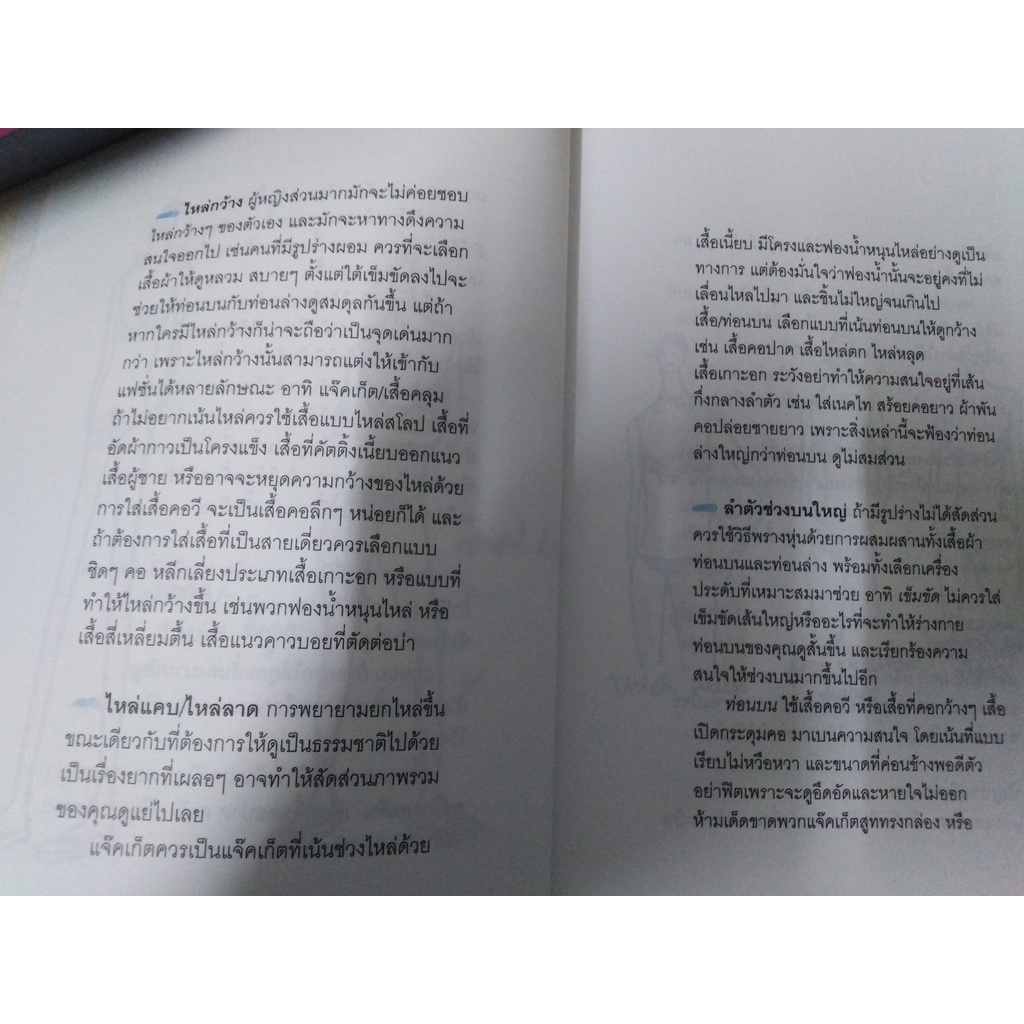 ไหล่กว้าง ผู้หญิงส่วนมากมักจะไม่ค่อยชอบ
ไหล่กว้างๆ ของตัวเอง และมักจะหาทางดึงความ
สนใจออกไป เช่นคนที่มีรูปร่างผอม ควรที่จะเลือก
เสื้อผ้าให้ดูหลวม สบายๆ ตั้งแต่ใต้เข็มขัดลงไปจะ
ช่วยให้ท่อนบนกับท่อนล่างดูสมดุลกันขึ้น แต่ถ้า
หากใครมีไหล่กว้างก็น่าจะถือว่าเป็นจุดเด่นมาก
กว่า เพราะไหล่กว้างนั้นสามารถแต่งให้เข้ากับ
แฟชั่นได้หลายลักษณะ อาทิ แจ๊คเก็ต/เสื้อคลุม
ถ้าไม่อยากเน้นไหล่ควรใช้เสื้อแบบไหล่สโลป เสื้อที่
อัดผ้ากาวเป็นโครงแข็ง เสื้อที่คัตติ้งเนี้ยบออกแนว
เสื้อผู้ชาย หรืออาจจะหยุดความกว้างของไหล่ด้วย
การใส่เสื้อคอวี จะเป็นเสื้อคอลึกๆ หน่อยก็ได้ และ
ถ้าต้องการใส่เสื้อที่เป็นสายเดี่ยวควรเลือกแบบ
ชิดๆ คอ หลีกเลี่ยงประเภทเสื้อเกาะอก หรือแบบที่
ทำให้ไหล่กว้างขึ้น เช่นพวกฟองน้ำหนุนไหล่ หรือ
เสื้อสี่เหลี่ยมตื้น เสื้อแนวคาวบอยที่ตัดต่อบ่า
ไหล่แคบ/ไหล่ลาด การพยายามยกไหล่ขึ้น
ขณะเดียวกับที่ต้องการให้ดูเป็นธรรมชาติไปด้วย
เป็นเรื่องยากที่เผลอๆ อาจทำให้สัดส่วนภาพรวม
ของคุณดูแย่ไปเลย
แจ๊คเก็ตควรเป็นแจ๊คเก็ตที่เน้นช่วงไหล่ด้วย
เสื้อเนี้ยบ มีโครงและฟองน้ำหนุนไหล่อย่างดูเป็น
ทางการ แต่ต้องมั่นใจว่าฟองน้ำนั้นจะอยู่คงที่ไม่
เลื่อนไหลไปมา และชิ้นไม่ใหญ่จนเกินไป
เสื้อ/ท่อนบน เลือกแบบที่เน้นท่อนบนให้ดูกว้าง
เช่น เสื้อคอปาด เสื้อไหล่ตก ไหล่หลุด
เสื้อเกาะอก ระวังอย่าทำให้ความสนใจอยู่ที่เส้น
กึ่งกลางลำตัว เช่น ใส่เนคไท สร้อยคอยาว ผ้าพัน
คอปล่อยชายยาว เพราะสิ่งเหล่านี้จะฟ้องว่าท่อน
ล่างใหญ่กว่าท่อนบน ดูไม่สมส่วน
ลำตัวช่วงบนใหญ่ ถ้ามีรูปร่างไม่ได้สัดส่วน
ควรใช้วิธีพรางหุ่นด้วยการผสมผสานทั้งเสื้อผ้า
ท่อนบนและท่อนล่าง พร้อมทั้งเลือกเครื่อง
ประดับที่เหมาะสมมาช่วย อาทิ เข็มขัด ไม่ควรใส่
เข็มขัดเส้นใหญ่หรืออะไรที่จะทำให้ร่างกาย
ท่อนบนของคุณดูสั้นขึ้น และเรียกร้องความ
สนใจให้ช่วงบนมากขึ้นไปอีก
ท่อนบน ใช้เสื้อคอวี หรือเสื้อที่คอกว้างๆ เสื้อ
เปิดกระดุมคอ มาเบนความสนใจ โดยเน้นที่แบบ
เรียบไม่หวือหวา และขนาดที่ค่อนข้างพอดีตัว
อย่าฟิตเพราะจะดูอึดอัดและหายใจไม่ออก
ห้ามเด็ดขาดพวกแจ๊คเก็ตสูททรงกล่อง หรือ